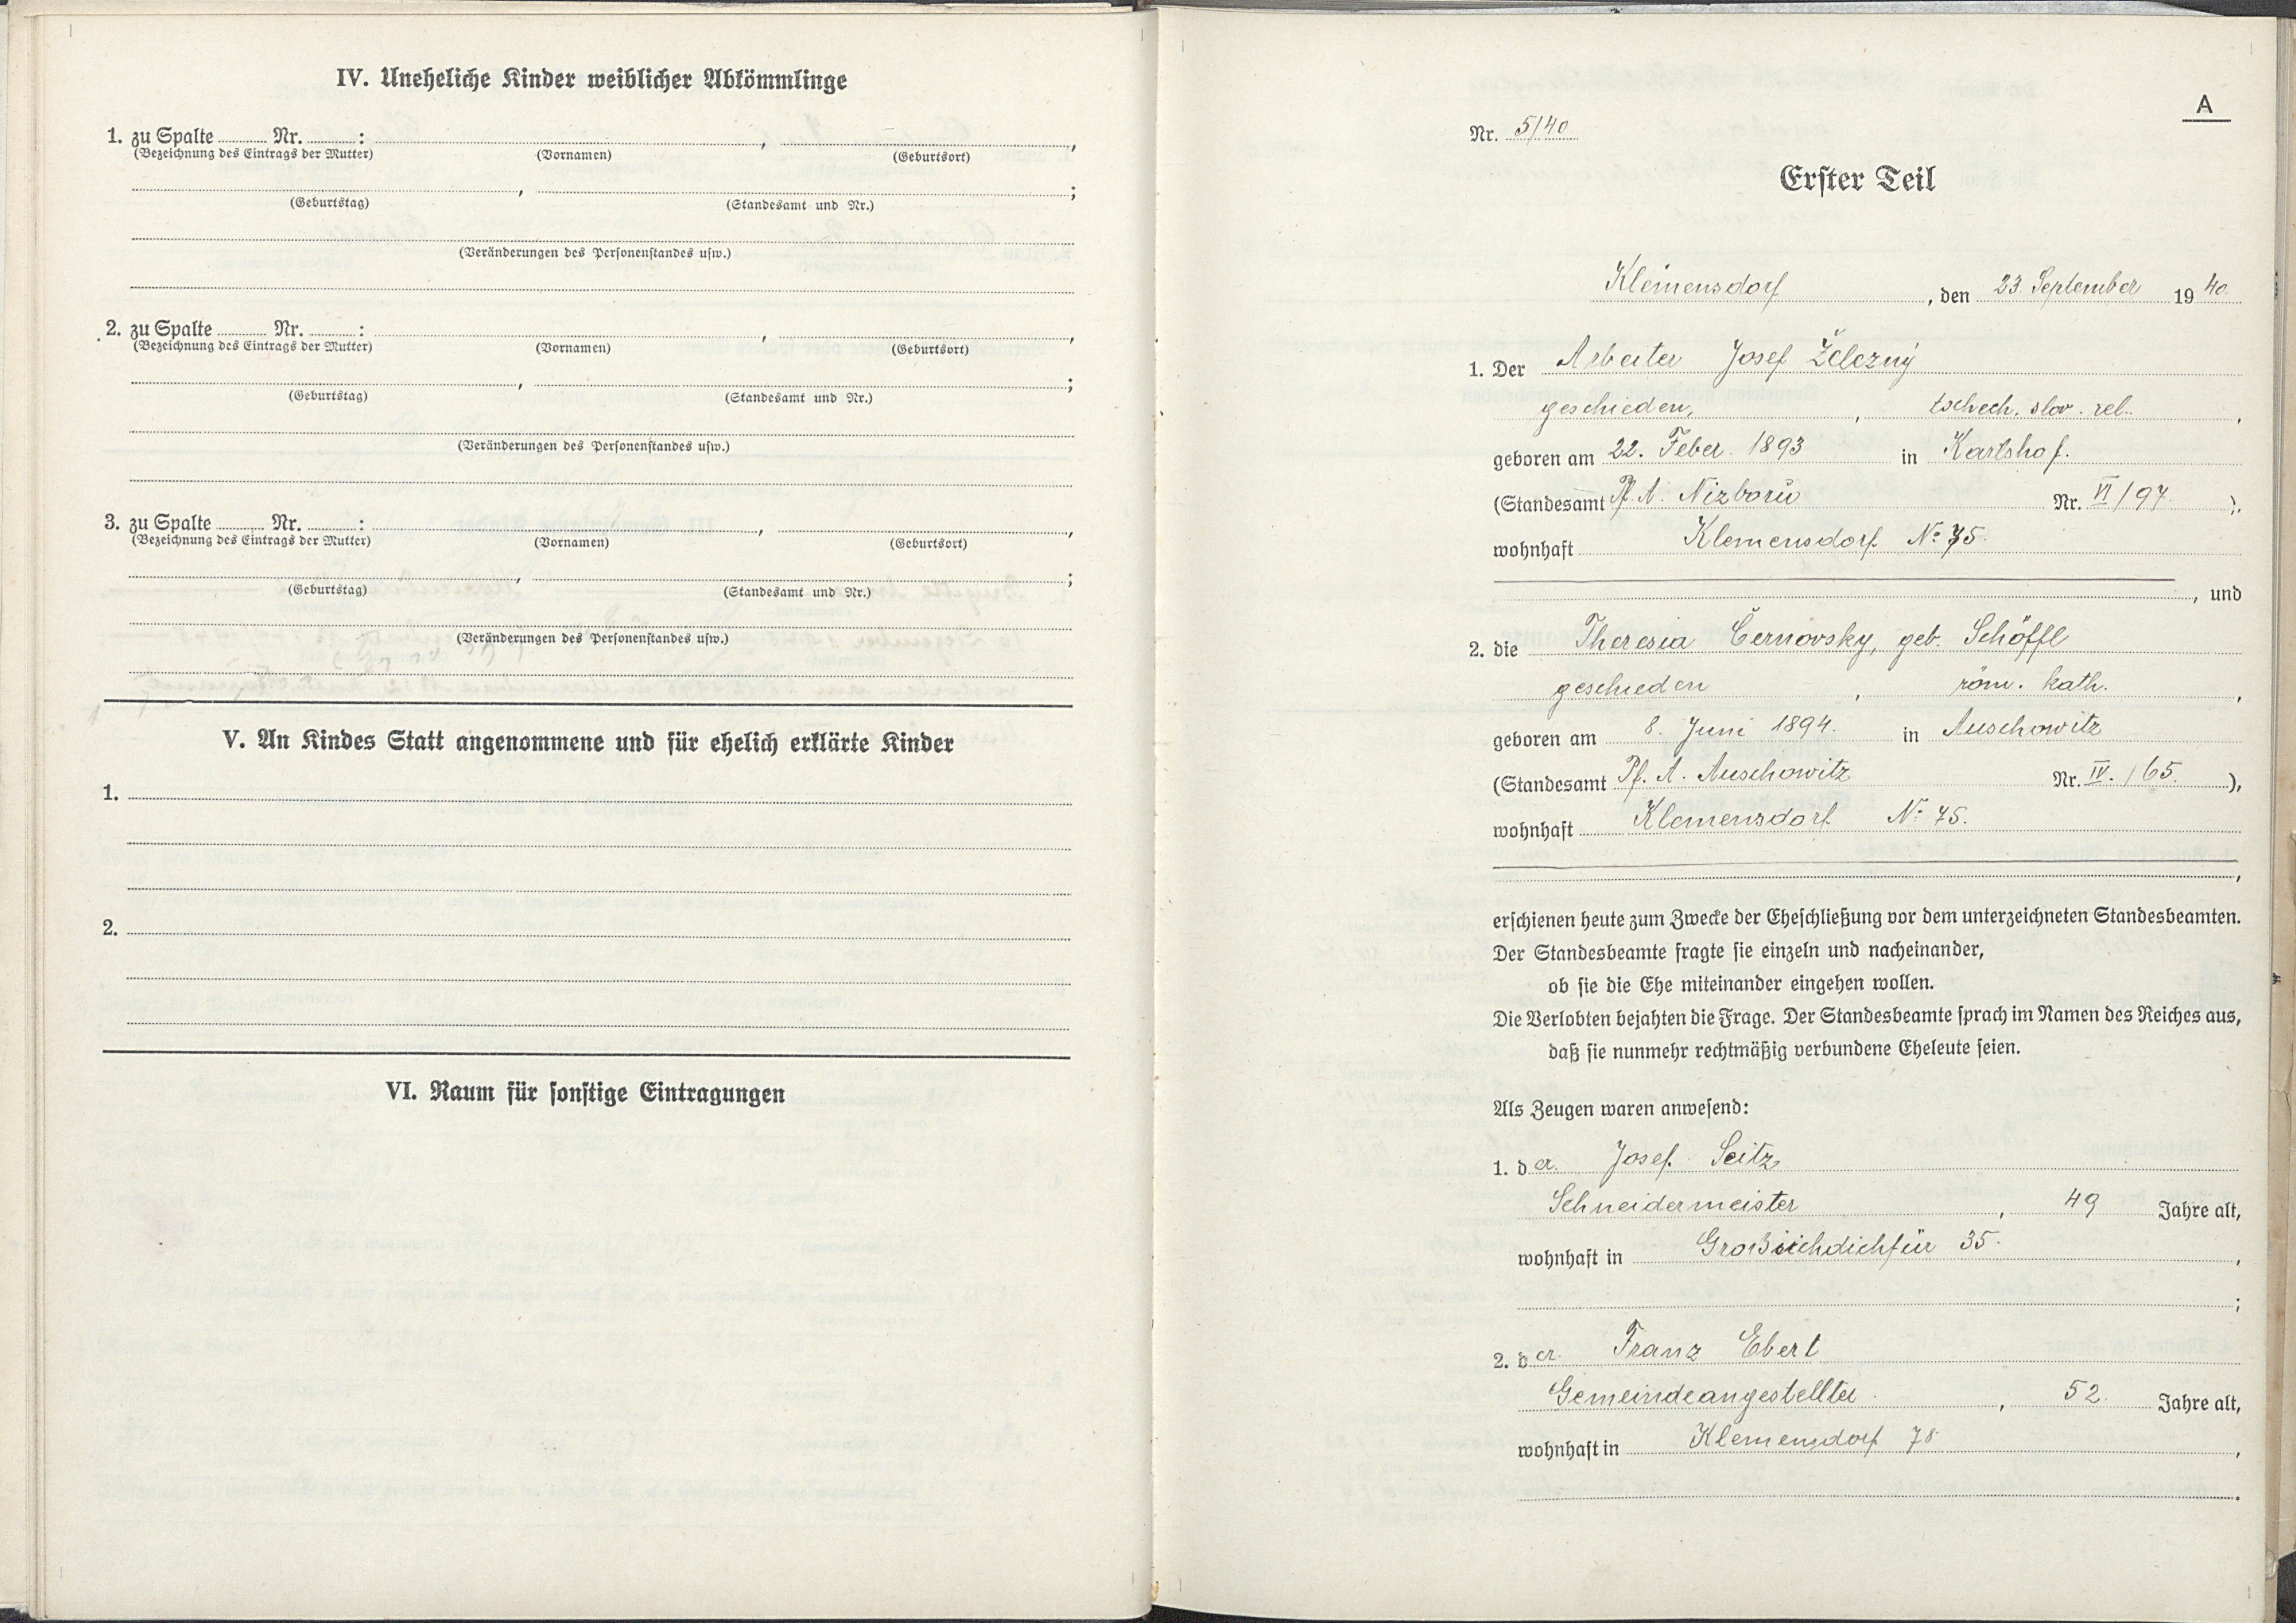 IV. Uneheliche Kinder weiblicher Abkömmlinge
1. zu Spalte ........ Nr. ........ : ........, ........,
(Bezeichnung des Eintrags der Mutter) (Vornamen) (Geburtsort)
........, ........;
(Geburtstag) (Standesamt und Nr.)
(Veränderungen des Personenstandes usw.)
2. zu Spalte ........ Nr. ........ : ........, ........,
(Bezeichnung des Eintrags der Mutter) (Vornamen) (Geburtsort)
........, ........;
(Geburtstag) (Standesamt und Nr.)
(Veränderungen des Personenstandes usw.)
3. zu Spalte ........ Nr. ........ : ........, ........,
(Bezeichnung des Eintrags der Mutter) (Vornamen) (Geburtsort)
........, ........;
(Geburtstag) (Standesamt und Nr.)
(Veränderungen des Personenstandes usw.)
V. An Kindes Statt angenommene und für ehelich erklärte Kinder
1.
2.
VI. Raum für sonstige Eintragungen
A
Nr. 5/40
Erster Teil
Klemensdorf, den 23. September 1940.
1. Der Arbeiter Josef Železný
geschieden, , tschech. slov. rel.,
geboren am 22. Feber 1893 in Karlshof.
(Standesamt Pf. A. Nizborü Nr. VI/97.),
wohnhaft Klemensdorf No 75.
, und
2. die Theresia Černovsky, geb. Schöffl
geschieden, röm. kath.,
geboren am 8. Juni 1894. in Auschowitz
(Standesamt Pf. A. Auschowitz Nr. IV./65.),
wohnhaft Klemensdorf No 75.
,
erschienen heute zum Zwecke der Eheschließung vor dem unterzeichneten Standesbeamten.
Der Standesbeamte fragte sie einzeln und nacheinander,
ob sie die Ehe miteinander eingehen wollen.
Die Verlobten bejahten die Frage. Der Standesbeamte sprach im Namen des Reiches aus,
daß sie nunmehr rechtmäßig verbundene Eheleute seien.
Als Zeugen waren anwesend:
1. der Josef Seitz
Schneidermeister, 49 Jahre alt,
wohnhaft in Großsichdichfür 35.,
;
2. der Franz Ebert
Gemeindeangestellter, 52. Jahre alt,
wohnhaft in Klemensdorf 78,
.